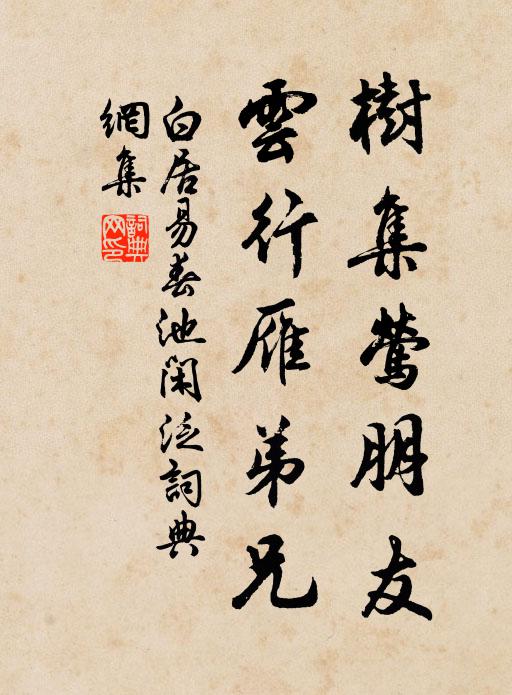 樹集鶯朋友
雲行雁弟兄
白居易春池閑泛詞典
網集
詞典
网印